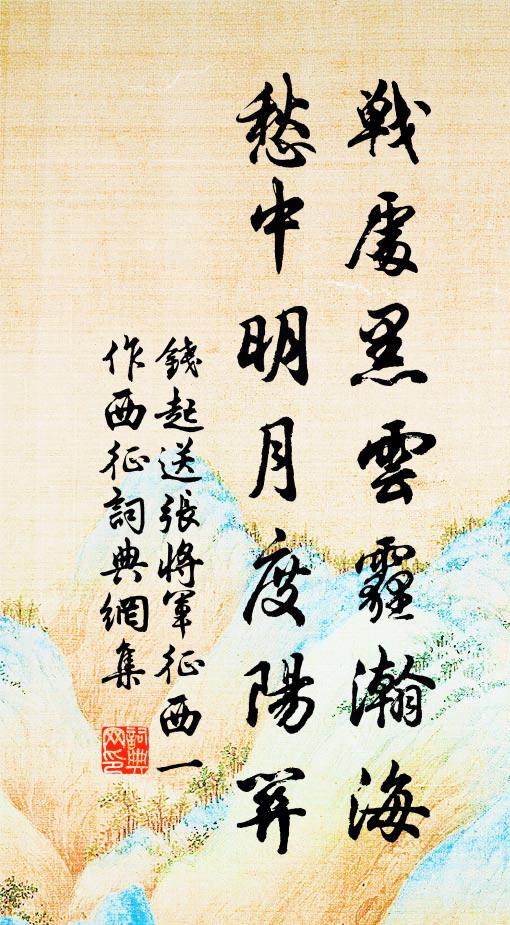 戰處黑雲霾瀚海
愁中明月度陽關
錢起送張將軍征西一
作西征詞典網集
詞典
网印